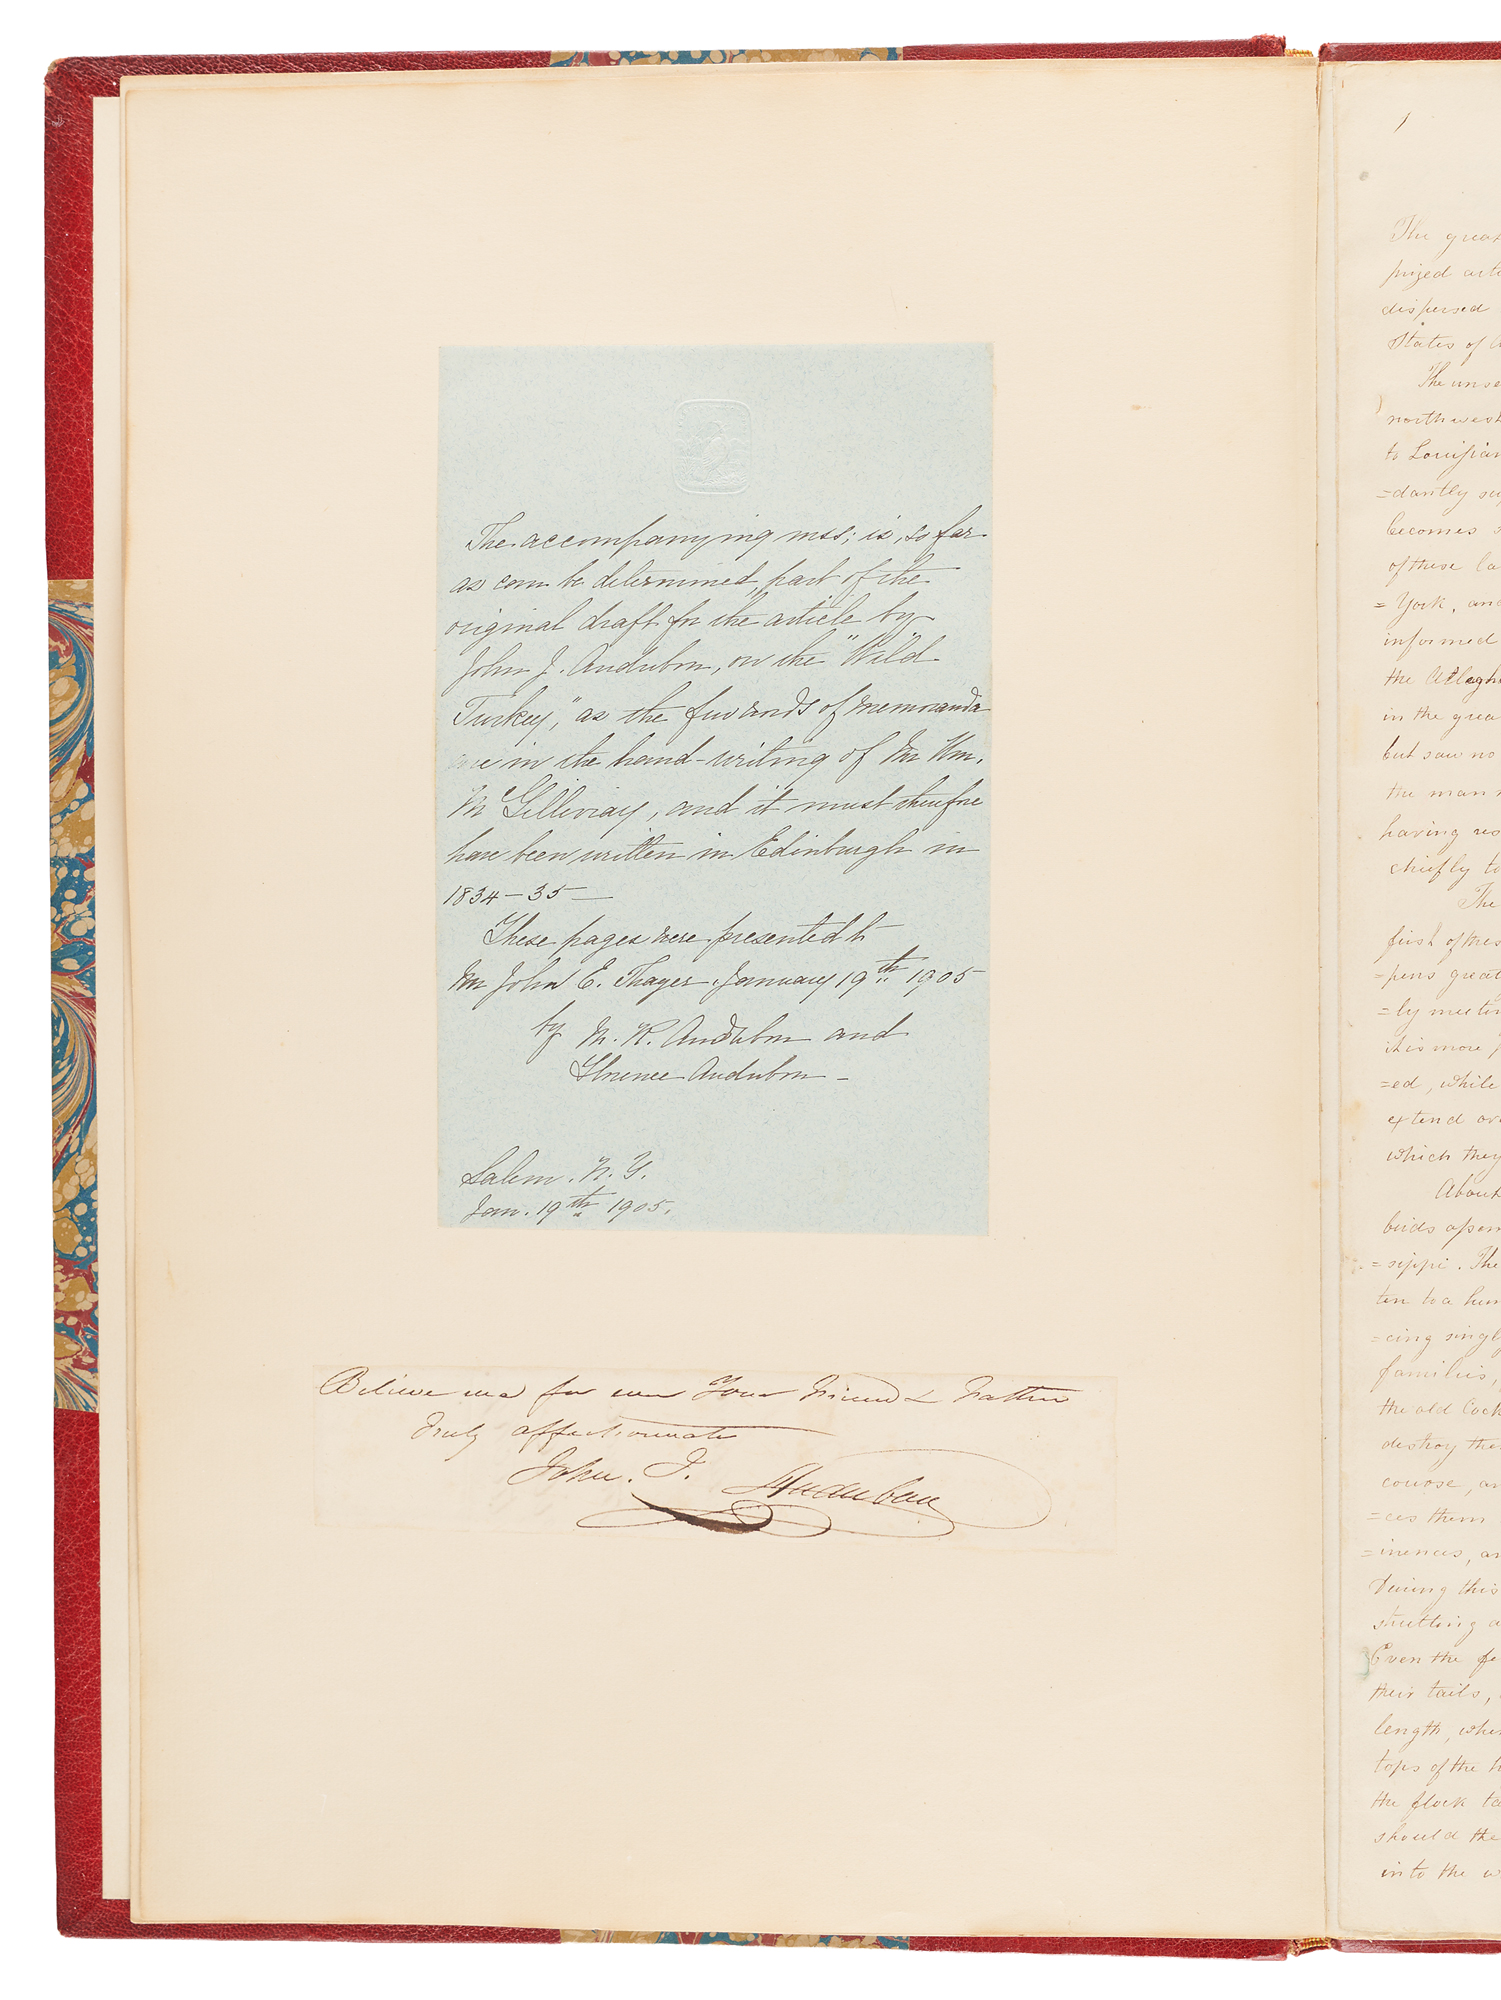 The accompanying mss; is, so far
as can be determined, part of the
original draft for the article by
John J. Audubon, on the "Wild
Turkey," as the few words of memoranda
are in the hand-writing of Mr Wm.
McGillivray, and it must therefore
have been written in Edinburgh in
1834-35—
These pages were presented to
Mr John E. Thayer. January 19th 1905
by M. R. Audubon and
Florence Audubon -
Salem. N. Y.
Jan. 19th 1905.
Believe me for ever Your Friend & Father
Truly affectionate
John. J. Audubon
1
The great
prized arti
dispersed
States of A
The unse
northwest
to Louisian
=dantly sup
becomes s
of these la
=York, and
informed
the Allegh
in the grea
but saw no
the man
having res
chiefly to
The
first of thes
=pens great
=ly meetin
it is more p
=ed, while
extend ove
which they
About
birds assem
=sippi. The
ten to a hun
=cing singl
families,
the old Cock
destroy the
course, an
=ces them
=inences, an
During this
strutting a
Even the fe
their tails,
length, when
tops of the h
the flock ta
should the
into the w